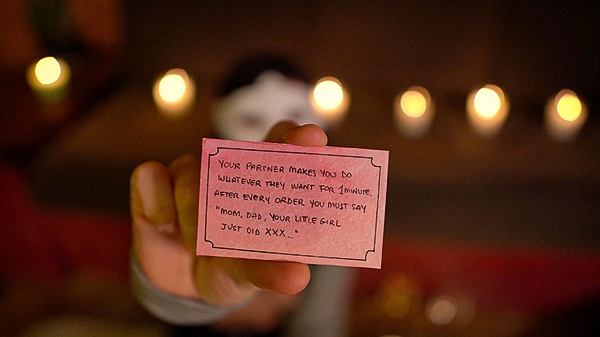 YOUR PARTNER MAKES YOU DO
WHATEVER THEY WANT FOR 1 MINUTE.
AFTER EVERY ORDER YOU MUST SAY
"MOM, DAD, YOUR LITTLE GIRL
JUST DID XXX..."